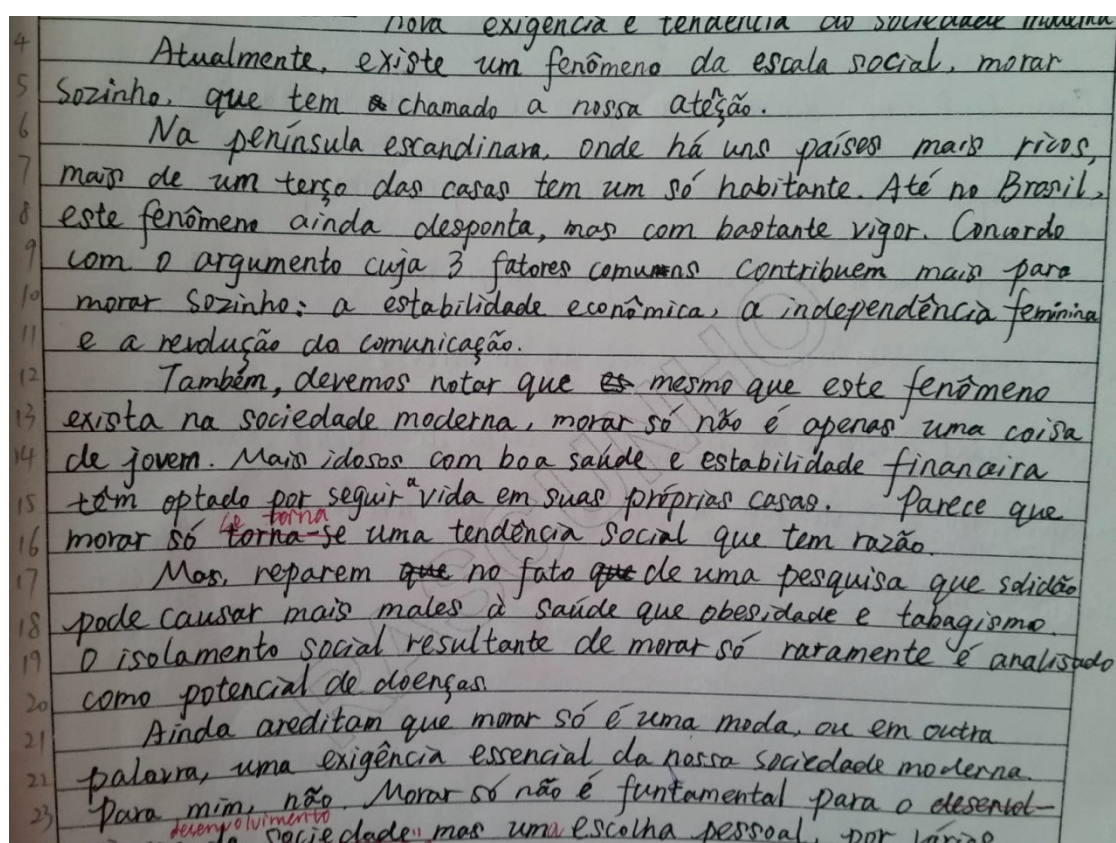 nova exigência e tendência da sociedade moderna
4 Atualmente, existe um fenômeno da escala social, morar
5 Sozinho, que tem chamado a nossa ateção.
6 Na península escandinava, onde há uns países mais ricos,
7 mais de um terço das casas tem um só habitante. Até no Brasil,
8 este fenômeno ainda desponta, mas com bastante vigor. Concordo
9 com o argumento cuja 3 fatores comuns contribuem mais para
10 morar sozinho: a estabilidade econômica, a independência feminina
11 e a revolução da comunicação.
12 Também, devemos notar que mesmo que este fenômeno
13 exista na sociedade moderna, morar só não é apenas uma coisa
14 de jovem. Mais idosos com boa saúde e estabilidade financeira
15 têm optado por seguir a vida em suas próprias casas. Parece que
se torna
16 morar só torna-se uma tendência social que tem razão.
17 Mas, reparem no fato de uma pesquisa que solidão
18 pode causar mais males à saúde que obesidade e tabagismo.
19 O isolamento social resultante de morar só raramente é analisado
20 como potencial de doenças.
21 Ainda areditam que morar só é uma moda, ou em outra
22 palavra, uma exigência essencial da nossa sociedade moderna.
23 Para mim, não. Morar só não é funtamental para o desenvol-
desenvolvimento
da sociedade, mas uma escolha pessoal, por vários
RASCUNHO